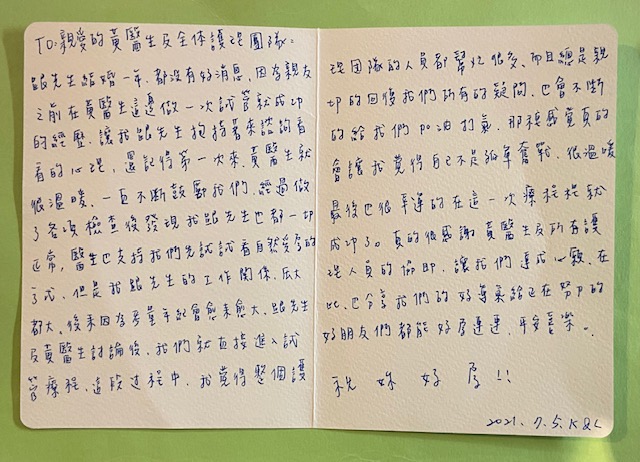 TO:親愛的黃醫生及全体護理團隊:
跟先生結婚一年,都沒有好消息,因為親友
之前在黃醫生這邊做一次試管就成功
的經歷,讓我跟先生抱持著來諮詢看
看的心理,還記得第一次來,黃醫生就
很溫暖、一直不斷鼓勵我們,經過做
了各項檢查後發現我跟先生也都一切
正常,醫生也支持我們先試試看自然受孕的
方式,但是我跟先生的工作關係,压力
都大,後來因為考量年紀會愈來愈大,跟先生
及黃醫生討論後,我們就直接進入試
管療程,這段过程中,我覺得整個護
理团隊的人員都幫忙很多,而且總是親
切的回復我們所有的疑問,也會不斷
的給我們加油打氣,那種感覺真的
會讓我覺得自己不是孤軍奮戰,很溫暖
最後也很幸運的在這一次療程裡就
成功了。真的很感謝黃醫生及所有護
理人員的協助,讓我們達成心願,在
此,也分享我們的好孕氣給正在努力的
好朋友們都能好孕連連,平安喜樂。
祝 妳 好 孕 !!
2021.7.5.K&L